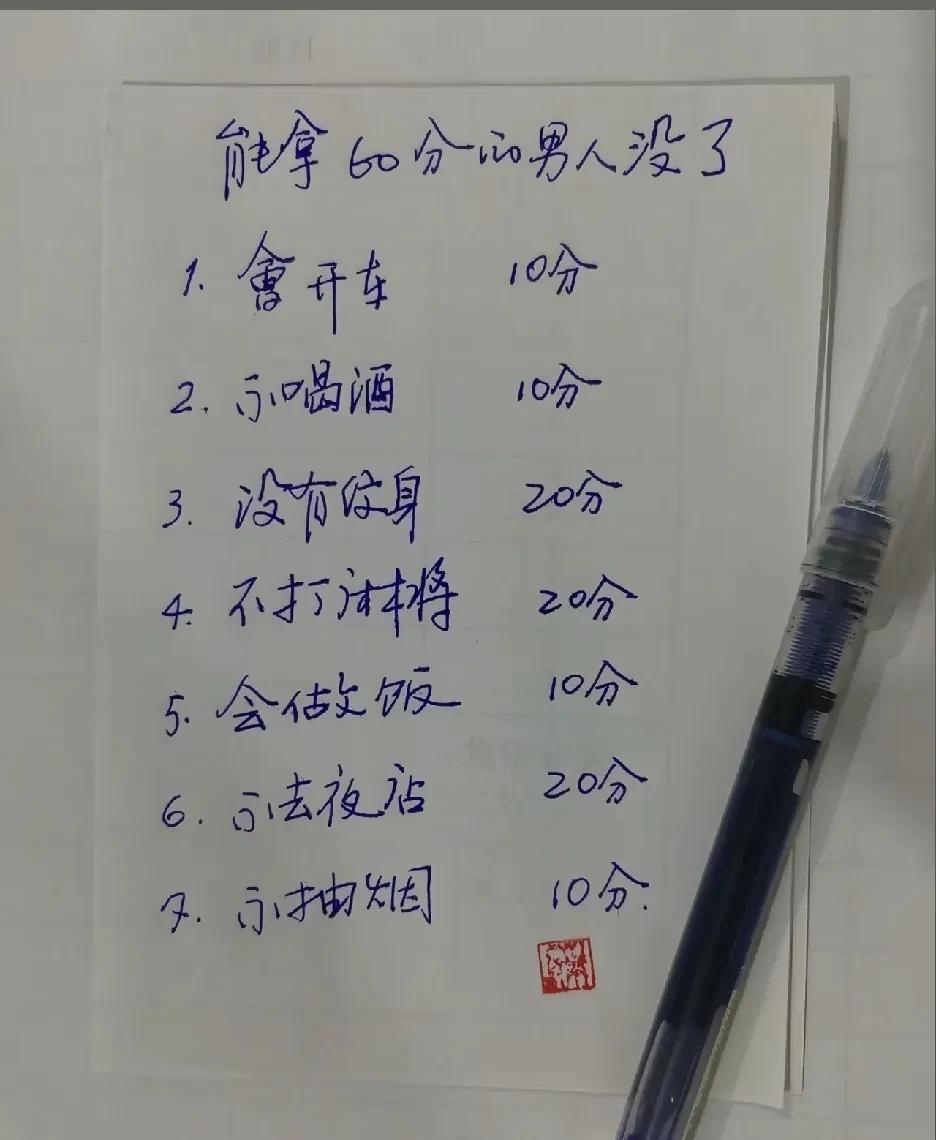 能拿60分的男人没了
1. 會开车 10分
2. 不喝酒 10分
3. 没有纹身 20分
4. 不打麻将 20分
5. 会做饭 10分
6. 不去夜店 20分
7. 不抽烟 10分.